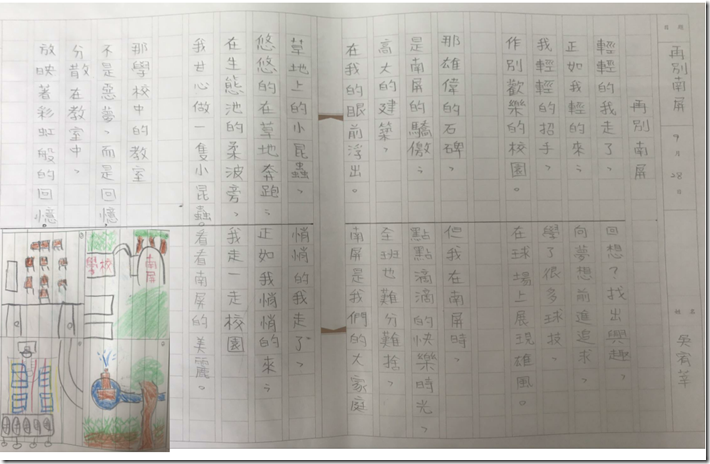 日期 再別南屏 9月28日 姓名 吳宥
再別南屏
輕輕的我走了，
正如我輕的來；
我輕輕的招手，
作別歡樂的校園。
那雄偉的石碑，
是南屏的驕傲；
高大的建築，
在我的眼前浮出。
草地上的小昆蟲，
悠悠的在草地奔跑；
在生態池的柔波旁，
我甘心做一隻小昆蟲。
那學校中的教室
不是惡夢，而是回憶
分散在教室中，
放映著彩虹般的回憶
回想？找出興趣，
向夢想前進追求，
學了很多球技，
在球場上展現雄風。
但我在南屏時，
點點滴滴的快樂時光，
全班也難分難捨，
南屏是我們的大家庭
悄悄的我走了，
正如我悄悄的來；
我走一走校園
看看南屏的美麗。
南屏
學校